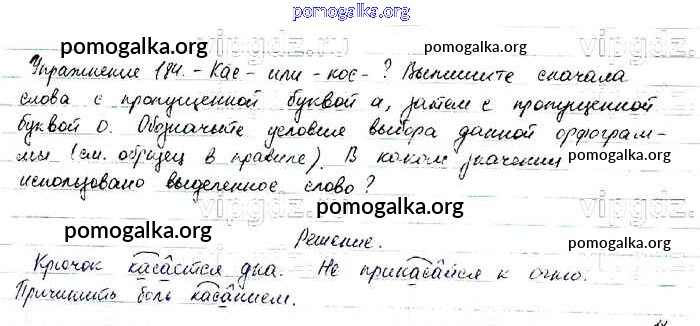 pomogalka.org
pomogalka.org pomogalka.org
Упражнение 184. - Кас - или - кос - ? Выпишите сначала
слова с пропущенной буквой а, затем с пропущенной
буквой о. Обозначьте условие выбора данной орфограм-
мы (см. образец в правиле). В каком значении
использовано выделенное слово?
vipgdz. pomogalka.org vipgdz.
pomogalka.org
Решение. pomogalka.org
pomogalka.org
Крючок касается дна. Не прикасайся к огню.
Причинить боль касанием.
pomogalka.org